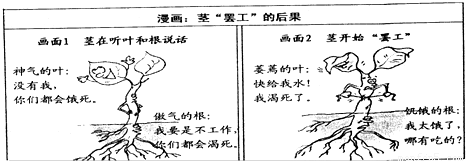 漫画：茎“罢工”的后果
画面1 茎在听叶和根说话
神气的叶：
没有我，
你们都会饿死。
傲气的根：
我要是不工作，
你们都会渴死。
画面2 茎开始“罢工”
萎蔫的叶：
快给我水！
我渴死了。
饥饿的根：
我太饿了，
哪有吃的？